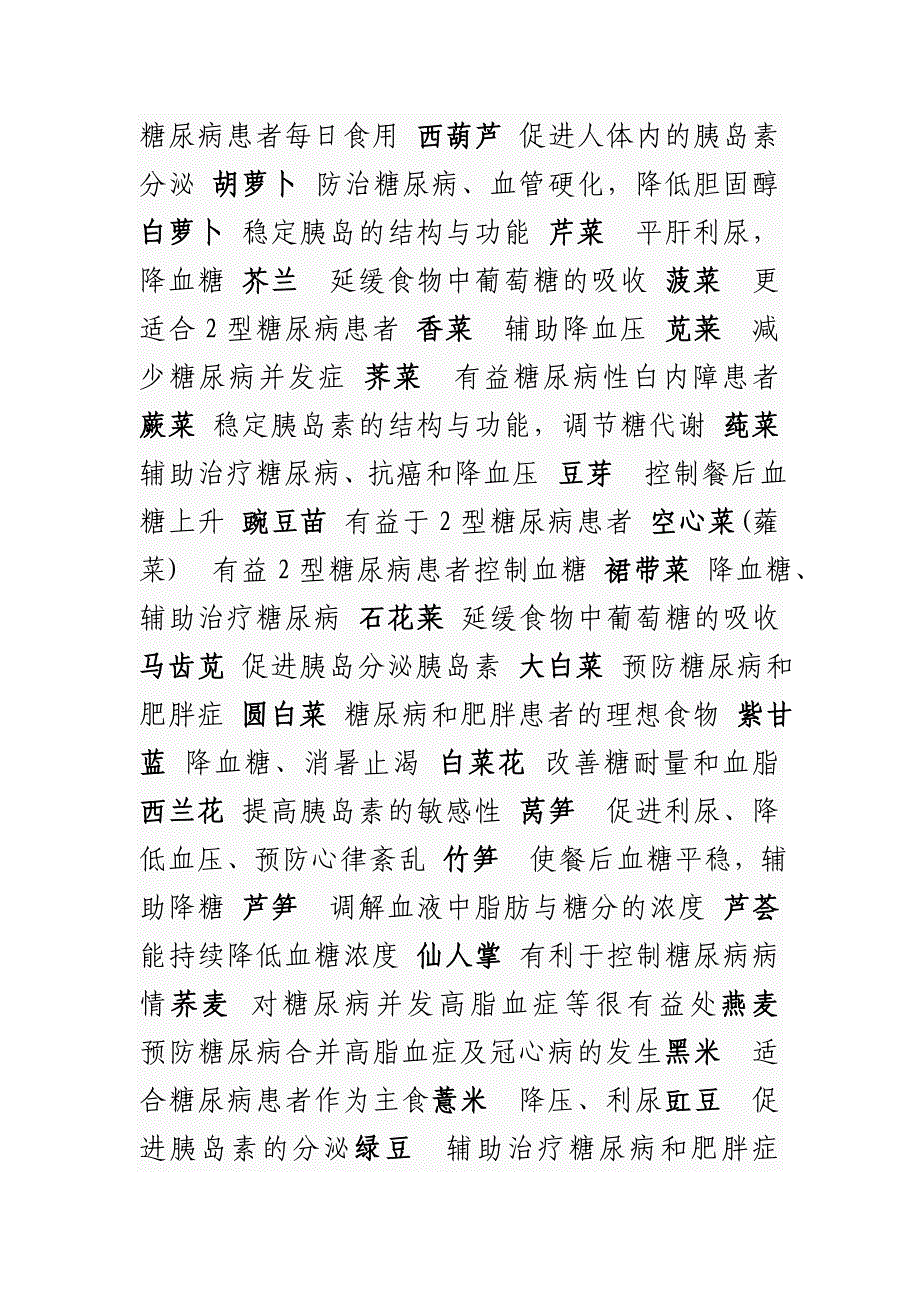 糖尿病患者每日食用 西葫芦 促进人体内的胰岛素
分泌 胡萝卜 防治糖尿病、血管硬化，降低胆固醇
白萝卜 稳定胰岛的结构与功能 芹菜　平肝利尿，
降血糖 芥兰　延缓食物中葡萄糖的吸收 菠菜　更
适合 2 型糖尿病患者 香菜　辅助降血压 苋菜　减
少糖尿病并发症 荠菜　有益糖尿病性白内障患者
蕨菜 稳定胰岛素的结构与功能，调节糖代谢 莼菜
辅助治疗糖尿病、抗癌和降血压 豆芽　控制餐后血
糖上升 豌豆苗 有益于 2 型糖尿病患者 空心菜(蕹
菜)　有益 2 型糖尿病患者控制血糖 裙带菜 降血糖、
辅助治疗糖尿病 石花菜 延缓食物中葡萄糖的吸收
马齿苋 促进胰岛分泌胰岛素 大白菜 预防糖尿病和
肥胖症 圆白菜 糖尿病和肥胖患者的理想食物 紫甘
蓝 降血糖、消暑止渴 白菜花 改善糖耐量和血脂
西兰花 提高胰岛素的敏感性 莴笋　促进利尿、降
低血压、预防心律紊乱 竹笋　使餐后血糖平稳，辅
助降糖 芦笋　调解血液中脂肪与糖分的浓度 芦荟
能持续降低血糖浓度 仙人掌 有利于控制糖尿病病
情荞麦　对糖尿病并发高脂血症等很有益处燕麦
预防糖尿病合并高脂血症及冠心病的发生黑米　适
合糖尿病患者作为主食薏米　降压、利尿豇豆　促
进胰岛素的分泌绿豆　辅助治疗糖尿病和肥胖症